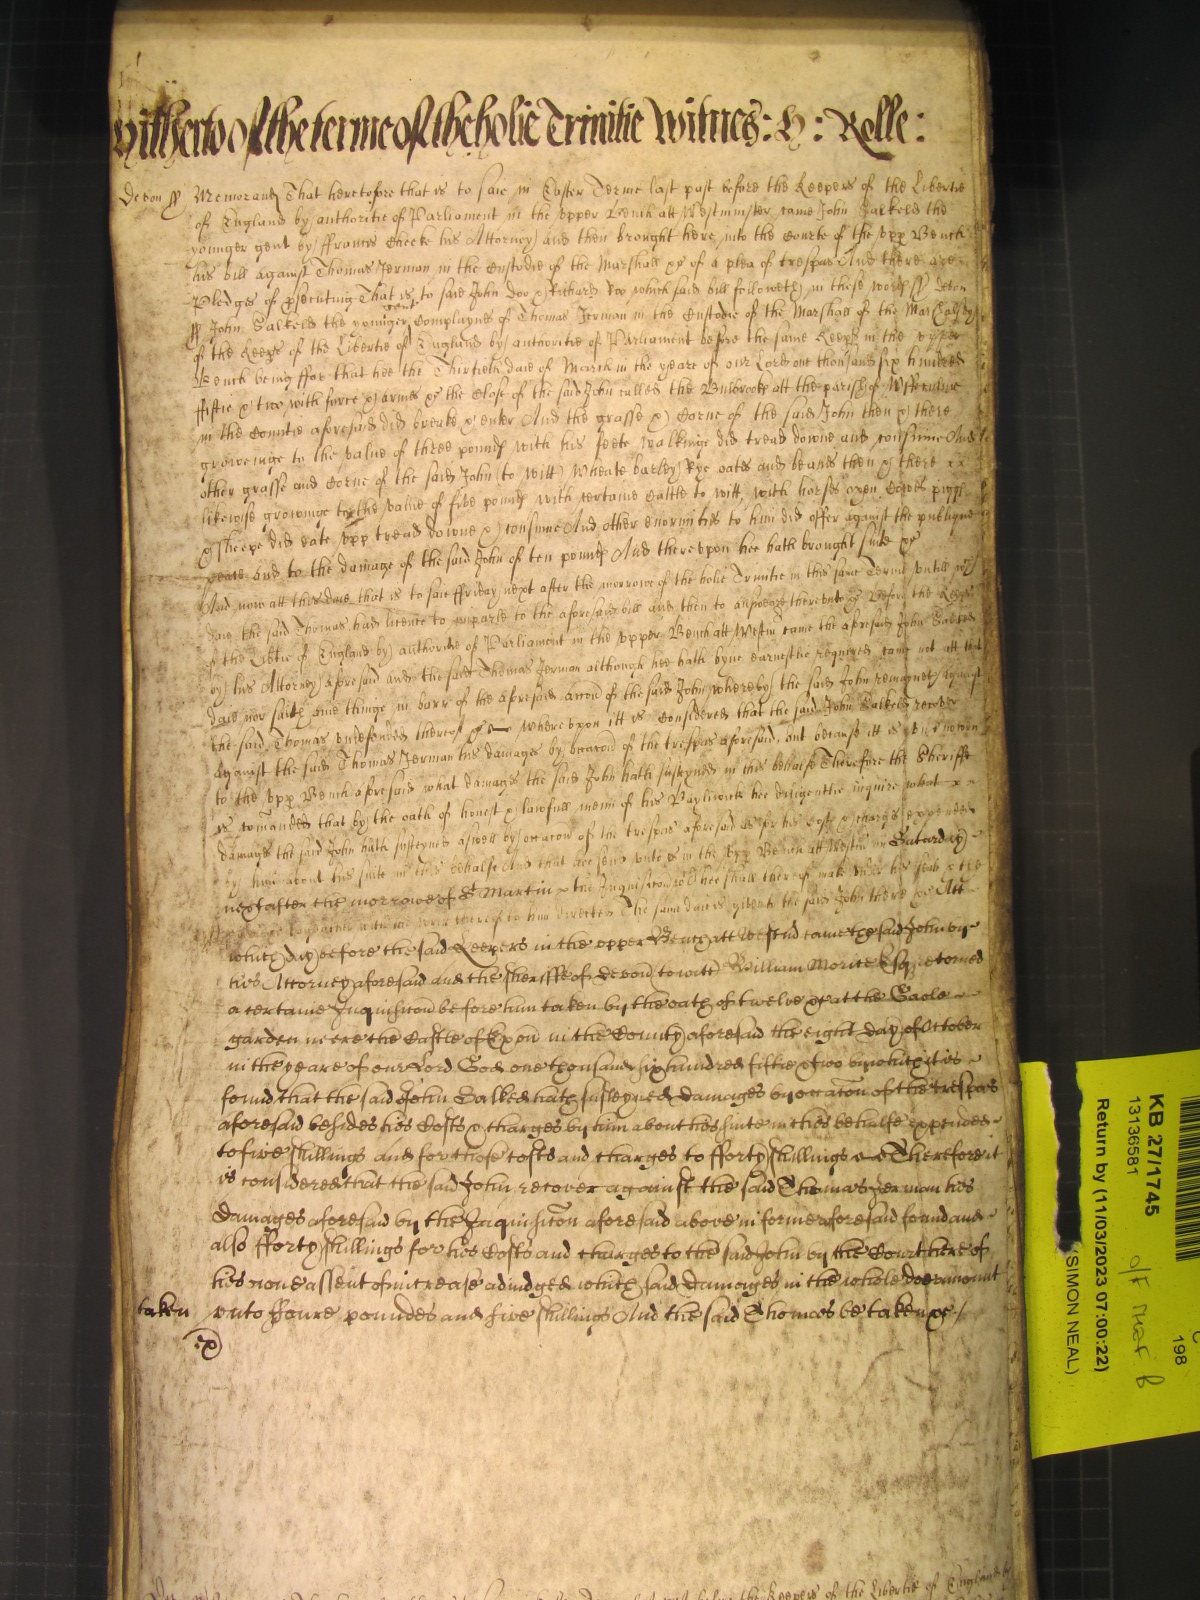 Hitherto of the terme of the holie Trinitie Witnes: H: Rolle:
Devon ss Memorand That heretofore that is to saie in Easter Terme last past before the Keepers of the Libertie
of England by authoritie of Parliament in the Upper Bench att Westminster came John Salkeld the
younger gent by ffrancis Cheeke his Attorney and then brought here into the Courte of the upp Bench
his bill against Thomas Jerman in the Custodie of the Marshall &c of a plea of trespas And there are
Pledges of psecuting That is to saie John Doo & Richard Roo which said bill followeth in these words ss Devon
ss John Salkeld the younger gent Complaynes of Thomas Jerman in the Custodie of the Marshall of the Marshalsey
of the Keeps of the Libertie of England by authoritie of Parliament before the same Keeps in the upper
Bench being ffor that hee the Thirtieth daie of March in the yeare of our Lord one thousand six hundred
fiftie & two with force & armes &c the Close of the said John called the Bulbrooke att the parish of
in the Countie aforesaid did breake & enter And the grasse & Corne of the said John then & there
groweinge to the value of three pounds with his feete walkinge did tread downe and consume And
other grasse and Corne of the said John to witt Wheate barley Rye oates and beans then & there
likewise growinge to the value of five pounds with certaine Cattle to witt with horses oxen Cowes piggs
& sheepe did eate upp tread downe & consume And other enormities to him did offer against the publique
peace and to the damage of the said John of ten pounds And thereupon hee hath brought suite &c
And now att this daie that is to saie ffriday next after the morrowe of the holie Trinitie in this same Terme untill wch
daie the said Thomas had licence to imparle to the aforesaid bill and then to answeare thereunto &c Before the Keeps
of the Libtie of England by authoritie of Parliament in the upper Bench att Westm came the aforesaid John Salkeld
by his Attorney aforesaid and the said Thomas Jerman although hee hath byne earnestlie required came not att that
daie nor saith anie thinge in barr of the aforesaid accon of the said John whereby the said John remayneth against
the said Thomas undefended thereof &c Whereupon itt is Considered that the said John Salkeld recover
against the said Thomas Jerman his damages by occacon of the trespas aforesaid, but because itt is unknowen
to the upp Bench aforesaid what damages the said John hath susteyned in this behalfe Therefore the Sheriffe
is comanded that by the oath of honest & lawfull menn of his Bayliwick hee diligentlie inquire what
damages the said John hath susteyned aswell by occacon of the trespas aforesaid as for his Costs & charges expended
by him about his suite in this behalfe And that hee send unto in the upp Bench att Westm on Saturday
next after the morrowe of St Martin the Inquisicon wch hee shall thereof make under his seale & the
togeather with the writt thereof to him directed The same daie is given to the said John there &c Att
which day before the said Keepers in the upper Bench att Westmd came the said John by
his Attorney aforesaid and the sheriffe of Devon to witt William Morice Esqr retorned
a certaine Inquisicon before him taken by the oath of twelve &c at the Gaole
garden neere the Castle of Exon in the County aforesaid the eight day of October
in the yeare of our Lord God one thousand six hundred fiftie & two by which it is
found that the said John Salkeld hath susteyned damages by occacon of the trespas
aforesaid besides his Costs & charges by him about his suite in this behalfe expended
to five shillings and for those costs and charges to fforty shillings Therefore it
is considered that the said John recover against the said Thomas Jerman his
damages aforesaid by the Inquisicon aforesaid above in forme aforesaid found and
also fforty shillings for his Costs and charges to the said John by the Court here of
his none assent of increase adiudged which said damages in the whole doe amount
taken unto ffoure poundes and five shillings And the said Thomas be taken &c/
ex
before the Keepers of the Libertie of England
KB 27/1745
13136581
Return by (11/03/2023 07:00:22)
(SIMON NEAL)
198